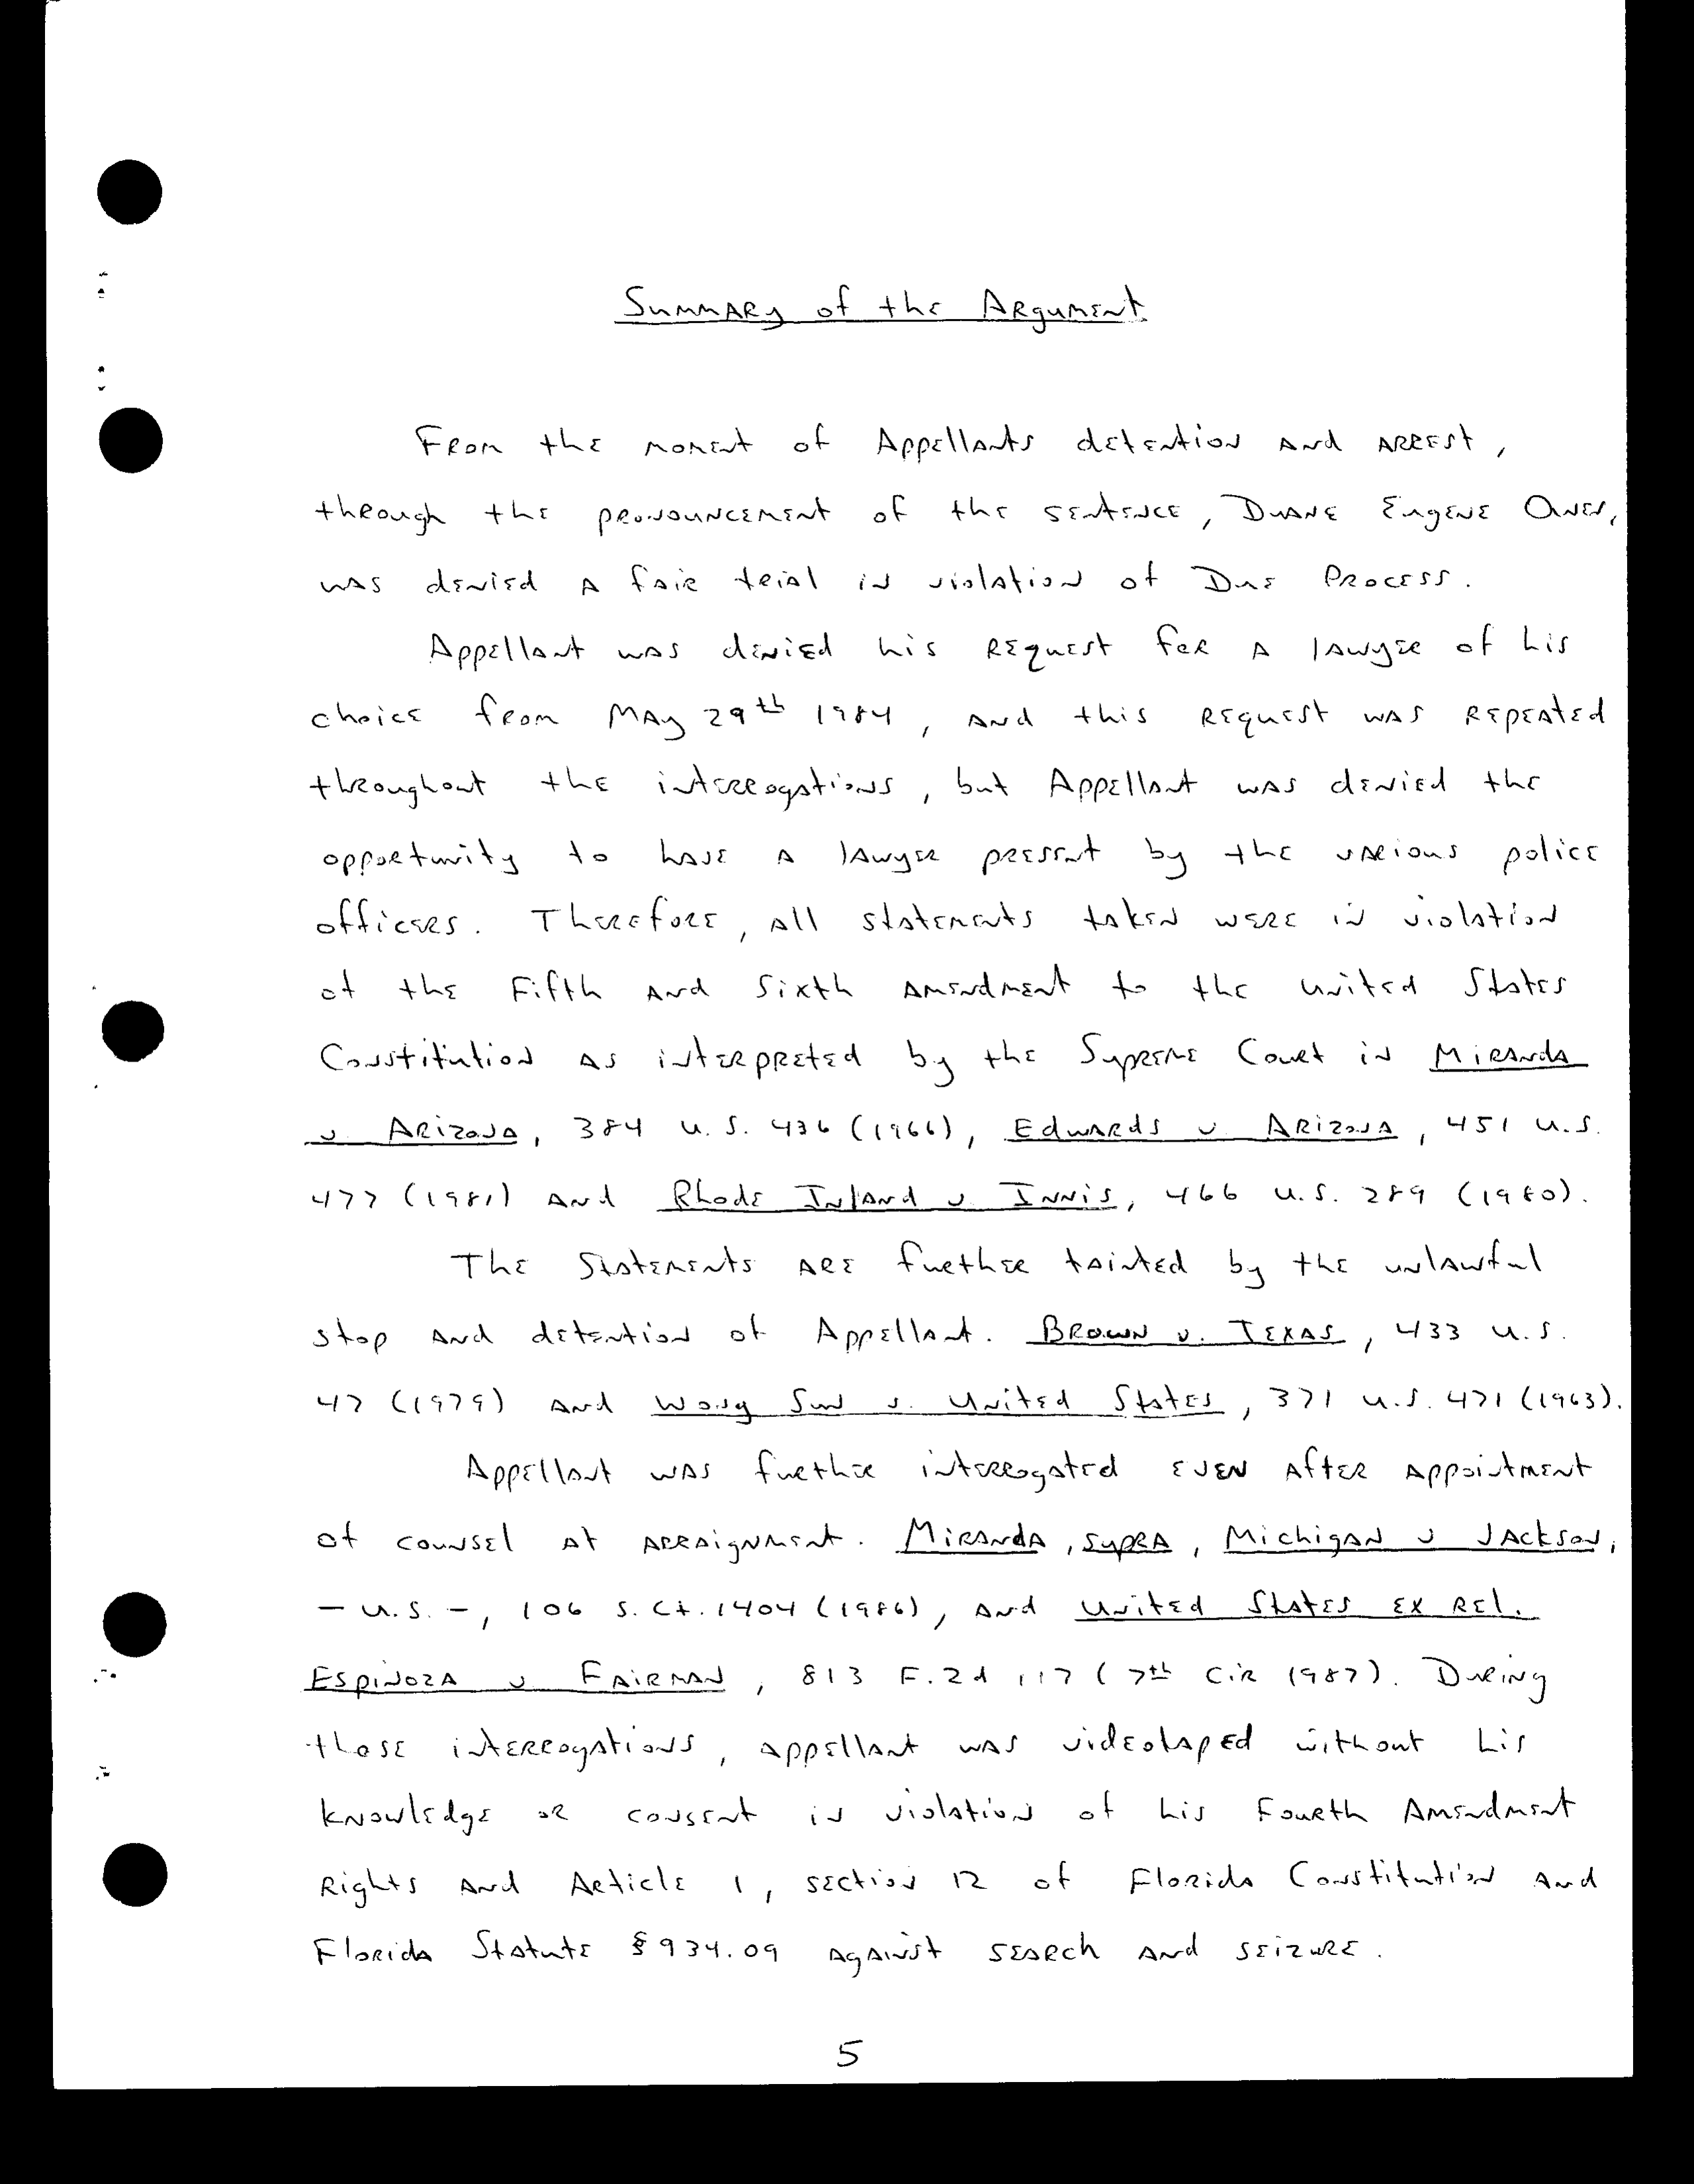 Summary of the Argument
From the moment of Appellants detention and arrest,
through the pronouncement of the sentence, Duane Eugene Owen,
was denied a fair trial in violation of Due Process.
Appellant was denied his request for a lawyer of his
choice from May 29th 1984, and this request was repeated
throughout the interrogations, but Appellant was denied the
opportunity to have a lawyer present by the various police
officers. Therefore, all statements taken were in violation
of the Fifth and Sixth Amendment to the United States
Constitution as interpreted by the Supreme Court in Miranda
v Arizona, 384 U.S. 436 (1966), Edwards v Arizona, 451 U.S.
477 (1981) and Rhode Island v Innis, 466 U.S. 289 (1980).
The statements are further tainted by the unlawful
stop and detention of Appellant. Brown v. Texas, 433 U.S.
47 (1979) and Wong Sun v. United States, 371 U.S. 471 (1963).
Appellant was further interrogated even after appointment
of counsel at arraignment. Miranda, supra, Michigan v Jackson,
- U.S. -, 106 S.Ct. 1404 (1986), and United States ex rel.
Espinoza v Fairman, 813 F.2d 117 (7th Cir 1987). During
these interrogations, appellant was videotaped without his
knowledge or consent in violation of his Fourth Amendment
Rights and Article 1, section 12 of Florida Constitution and
Florida Statute §934.09 against search and seizure.
5